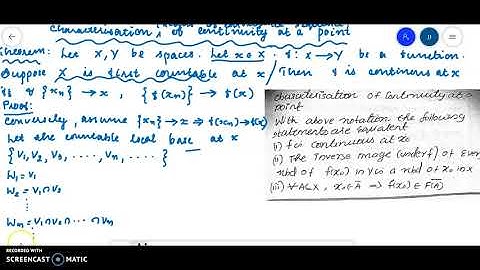 Characterisation of continuity at a point
Theorem: Let X, Y be spaces. Let x∈X. f: X→Y be a function.
Suppose X is first countable at x/ Then f is continuous at x
iff {xn}→x, {f(xn)}→f(x)
Proof:
Conversely, assume {xn}→x ⇒ f(xn)→f(x)
Let the countable local base at x
{V1, V2, V3, ...., Vn, ....}
W1 = V1
W2 = V1∩V2
Wn = V1∩V2∩ ... ∩Vn
Characterisation of Continuity at a
point
With above notation the following
statements are equivalent
(i) f is continuous at x0
(ii) The Inverse image (under f) of Every
nbd of f(x0) in Y is a nbd of x0 in X
(iii) ∀A⊂X, x0∈A̅ ⇒ f(x0)∈ F(A)̅
RECORDED WITH
SCREENCAST MATIC